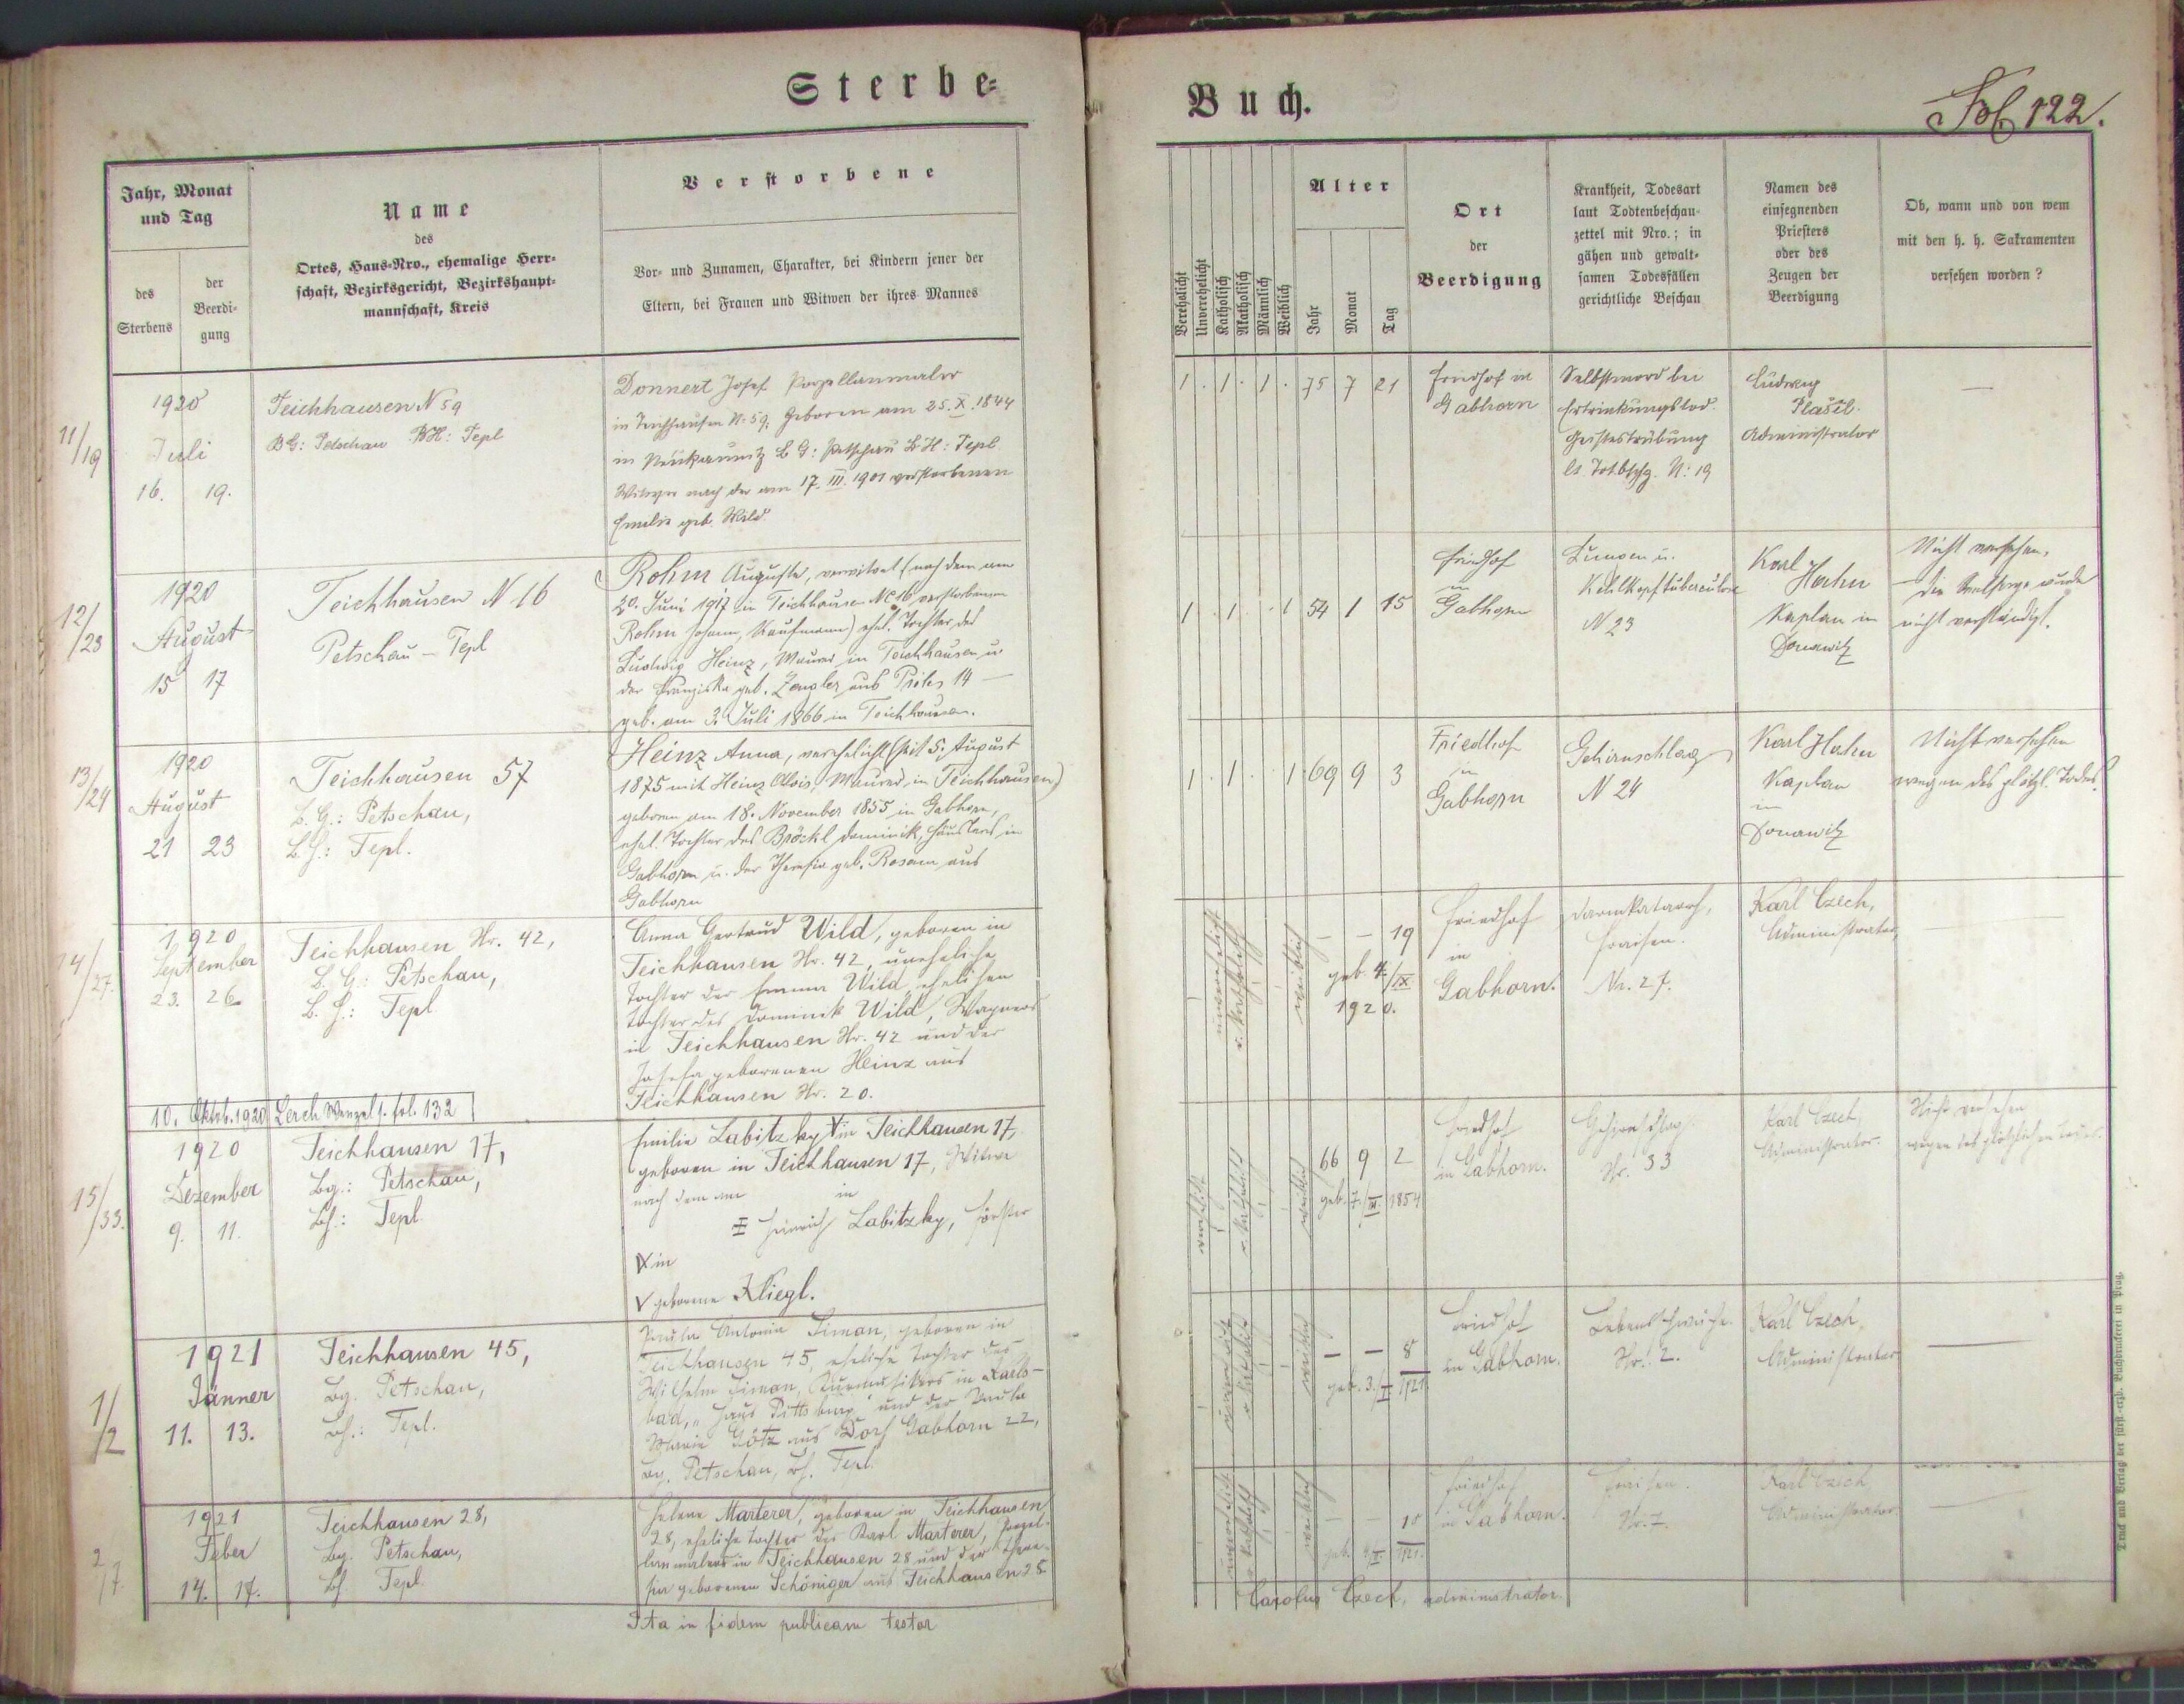 Sterbe-
Buch.
Fol 122.
Jahr, Monat
und Tag
des
Sterbens
der
Beerdi-
gung
Name
des
Ortes, Haus-Nro., ehemalige Herr-
schaft, Bezirksgericht, Bezirkshaupt-
mannschaft, Kreis
Verstorbene
Vor- und Zunamen, Charakter, bei Kindern jener der
Eltern, bei Frauen und Witwen der ihres Mannes
Verehelicht
Unverehelicht
Katholisch
Akatholisch
Männlich
Weiblich
Alter
Jahr
Monat
Tag
Ort
der
Beerdigung
Krankheit, Todesart
laut Todtenbeschau-
zettel mit Nro.; in
gähen und gewalt-
samen Todesfällen
gerichtliche Beschau
Namen des
einsegnenden
Priesters
oder des
Zeugen der
Beerdigung
Ob, wann und von wem
mit den h. h. Sakramenten
versehen worden?
11/19
1920
Juli
16. 19.
Teichhausen N 59
BG: Petschau BH: Tepl
Donnert Josef Porzellanmaler
in Teichhausen N: 59, geboren am 25. X. 1844
in BG: Petschau BH: Tepl
Witwer nach der am 17. III. 1901 verstorbenen
Emilie geb. Wild
1 . 1 . 1 . 75 7 21
Friedhof in
Gabhorn
Selbstmord bei
Ertrinkungstod.
Geistestrübung
N: 19
Ludwig
Plašil.
Administrator
—
12/23
1920
August
15 17
Teichhausen N 16
Petschau – Tepl
Rohm Auguste, verwitwet (nach dem am
20. Juni 1917 in Teichhausen No 16 verstorbenen
Rohm Johann, Kaufmann) ehel. Tochter des
Ludwig Heinz, Maurer in Teichhausen u.
der Franziska geb. aus 14 —
geb. am 3. Juli 1866 in Teichhausen.
1 . 1 . . 1 54 1 15
Friedhof
in
Gabhorn
Lungen u.
Kehlkopftuberculose
N 23
Karl
Hahn
Kaplan in
Donawitz
Nicht versehen.
Die Seelsorge wurde
nicht verständigt.
13/24
1920
August
21 23
Teichhausen 57
B. G.: Petschau,
B. H.: Tepl.
Heinz Anna, verehelicht (seit 5. August
1875 mit Heinz Alois, Maurer in Teichhausen)
geboren am 18. November 1855 in Gabhorn,
ehel. Tochter des Bröckl Dominik, Häuslers in
Gabhorn u. der Theresia geb. Rosam aus
Gabhorn
1 . 1 . . 1 69 9 3
Friedhof
in
Gabhorn
Gehirnschlag
N 24
Karl Hahn
Kaplan
in
Donawitz
Nicht versehen
wegen des plötzl. Todes.
14/27.
1920
September
23. 26.
Teichhausen Nr. 42,
B. G.: Petschau,
B. H.: Tepl
Anna Gertrud Wild, geboren in
Teichhausen Nr. 42, uneheliche
Tochter der Emma Wild, ehelichen
Tochter des Dominik Wild, Wagners
in Teichhausen Nr. 42 und der
Josefa geborenen Heinz aus
Teichhausen Nr. 20.
unverehelicht
r. katholisch
weiblich
— — 19
geb. 4./IX.
1920.
Friedhof
in
Gabhorn.
Darmkatarrh,
Fraisen.
Nr. 27.
Karl Czech,
Administrator,
—
10. Oktob. 1920 Lerch Wenzel s. fol. 132
15/33.
1920
Dezember
9. 11.
Teichhausen 17,
Bg.: Petschau,
Bh.: Tepl
Emilie Labitzky in Teichhausen 17,
geboren in Teichhausen 17, Witwe
nach dem am in
Heinrich Labitzky, Förster
in
geborene Kliegl.
r. katholisch
weiblich
66 9 2
geb. 7./III. 1854
Friedhof
in Gabhorn.
Gehirnschlag.
Nr. 33
Karl Czech,
Administrator.
Nicht versehen
wegen des plötzlichen Todes.
1/2
1921
Jänner
11. 13.
Teichhausen 45,
Bg. Petschau,
Bh.: Tepl.
Paula Antonia Siman, geboren in
Teichhausen 45, eheliche Tochter des
Wilhelm Siman, Kurmusikers in Karls-
bad, „Haus Pittsburg" und der Paula
Marie Götz aus Dorf Gabhorn 22,
Bg. Petschau, Bh. Tepl.
weiblich
— — 8
geb. 3./I. 1921.
Friedhof
in Gabhorn.
Lebensschwäche.
Nr. 2.
Karl Czech,
Administrator
—
2/7.
1921
Feber
14. 17.
Teichhausen 28,
Bg. Petschau,
Bh Tepl.
Helene Marterer, geboren in Teichhausen
28, eheliche Tochter des Karl Marterer, Porzel-
lanmalers in Teichhausen 28 und der There-
sia geborenen Schöniger aus Teichhausen 28
weiblich
— — 10
1921.
Friedhof
in Gabhorn.
Fraisen.
Nr. 7.
Karl Czech
Administrator.
—
Ita in fidem publicam testor
Carolus Czech, administrator.
Druck und Verlag der fürst-erzb. Buchdruckerei in Prag.